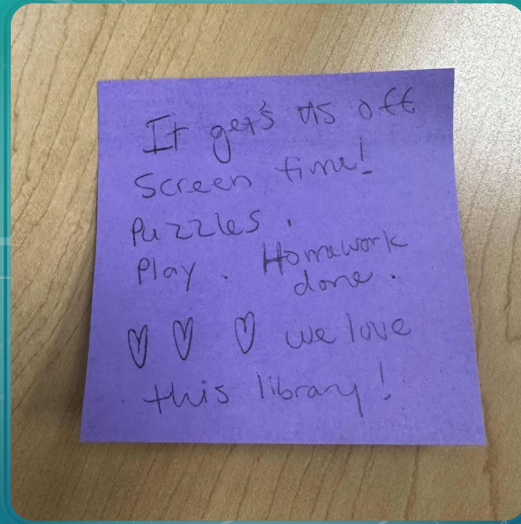 It gets us off
Screen time!
Puzzles.
Play. Homework
done.
♡ ♡ ♡ we love
this library!